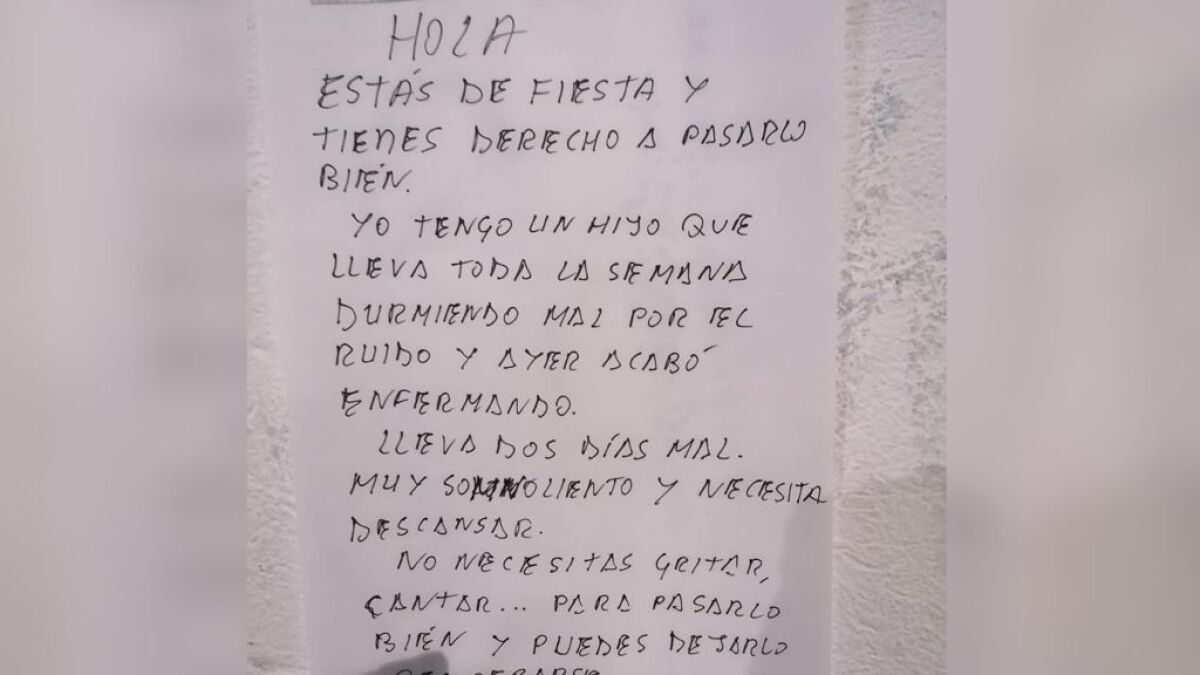 HOLA
ESTÁS DE FIESTA Y
TIENES DERECHO A PASARLO
BIÉN.
YO TENGO UN HIJO QUE
LLEVA TODA LA SEMANA
DURMIENDO MAL POR EL
RUIDO Y AYER ACABÓ
ENFERMANDO.
LLEVA DOS DÍAS MAL.
MUY SOMNOLIENTO Y NECESITA
DESCANSAR.
NO NECESITAS GRITAR,
CANTAR... PARA PASARLO
BIÉN Y PUEDES DEJARLO